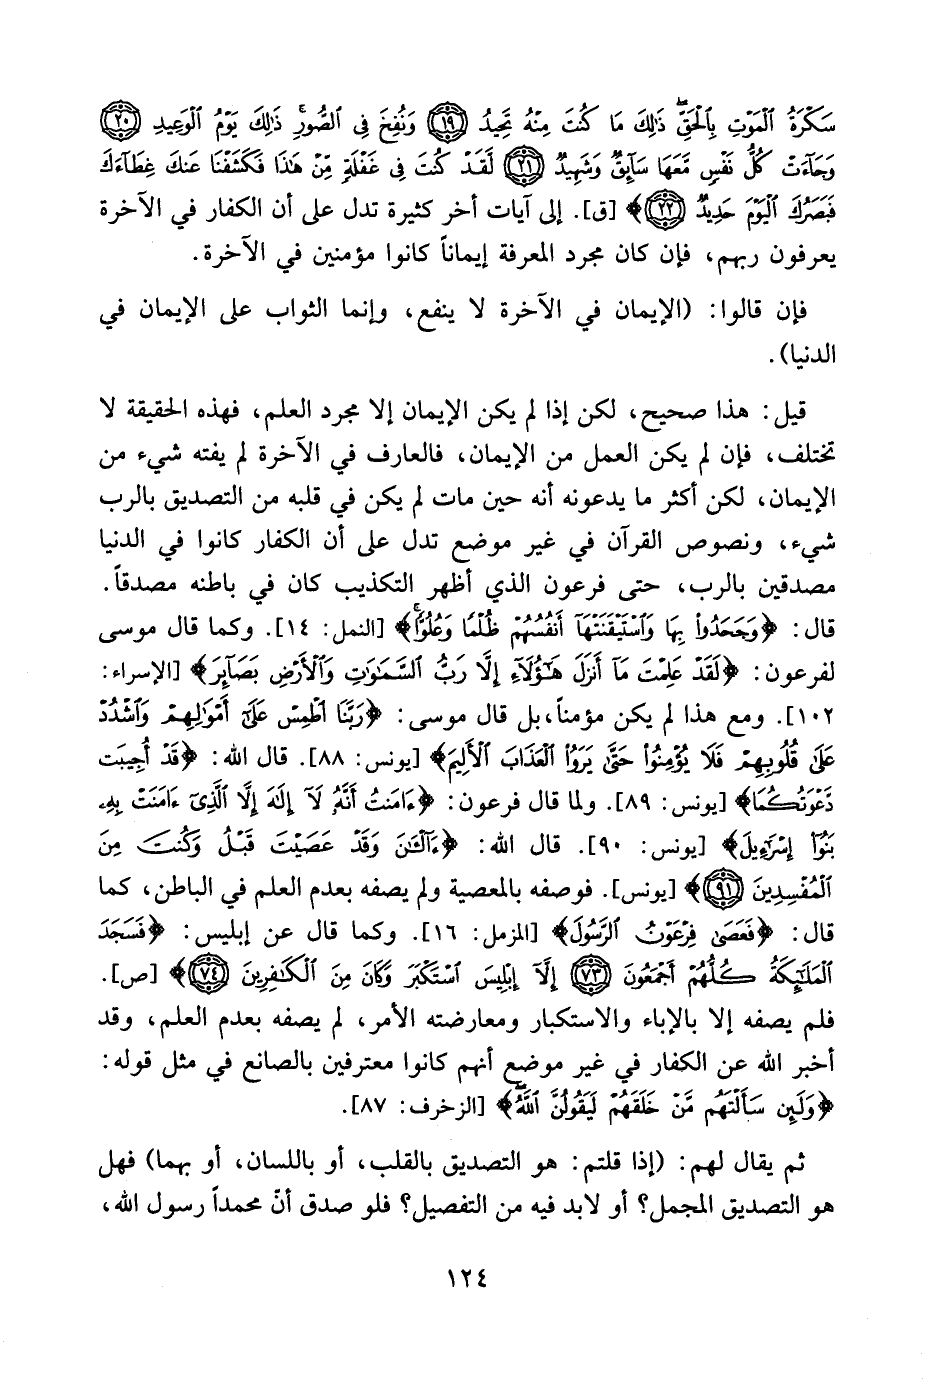 سَكْرَةُ ٱلْمَوْتِ بِٱلْحَقِّ ۖ ذَٰلِكَ مَا كُنتَ مِنْهُ تَحِيدُ ۝١٩ وَنُفِخَ فِى ٱلصُّورِ ۚ ذَٰلِكَ يَوْمُ ٱلْوَعِيدِ ۝٢٠
وَجَآءَتْ كُلُّ نَفْسٍ مَّعَهَا سَآئِقٌ وَشَهِيدٌ ۝٢١ لَّقَدْ كُنتَ فِى غَفْلَةٍ مِّنْ هَـٰذَا فَكَشَفْنَا عَنكَ غِطَآءَكَ
فَبَصَرُكَ ٱلْيَوْمَ حَدِيدٌ ۝٢٢﴾ [ق]. إلى آيات أخر كثيرة تدل على أن الكفار في الآخرة
يعرفون ربهم، فإن كان مجرد المعرفة إيماناً كانوا مؤمنين في الآخرة.
فإن قالوا: (الإيمان في الآخرة لا ينفع، وإنما الثواب على الإيمان في
الدنيا).
قيل: هذا صحيح، لكن إذا لم يكن الإيمان إلا مجرد العلم، فهذه الحقيقة لا
تختلف، فإن لم يكن العمل من الإيمان، فالعارف في الآخرة لم يفته شيء من
الإيمان، لكن أكثر ما يدعونه أنه حين مات لم يكن في قلبه من التصديق بالرب
شيء، ونصوص القرآن في غير موضع تدل على أن الكفار كانوا في الدنيا
مصدقين بالرب، حتى فرعون الذي أظهر التكذيب كان في باطنه مصدقاً.
قال: ﴿وَجَحَدُواْ بِهَا وَٱسْتَيْقَنَتْهَآ أَنفُسُهُمْ ظُلْمًا وَعُلُوًّا ۚ﴾ [النمل: ١٤]. وكما قال موسى
لفرعون: ﴿لَقَدْ عَلِمْتَ مَآ أَنزَلَ هَـٰٓؤُلَآءِ إِلَّا رَبُّ ٱلسَّمَـٰوَٰتِ وَٱلْأَرْضِ بَصَآئِرَ﴾ [الإسراء:
١٠٢]. ومع هذا لم يكن مؤمناً، بل قال موسى: ﴿رَبَّنَا ٱطْمِسْ عَلَىٰٓ أَمْوَٰلِهِمْ وَٱشْدُدْ
عَلَىٰ قُلُوبِهِمْ فَلَا يُؤْمِنُواْ حَتَّىٰ يَرَوُاْ ٱلْعَذَابَ ٱلْأَلِيمَ﴾ [يونس: ٨٨]. قال الله: ﴿قَدْ أُجِيبَت
دَّعْوَتُكُمَا﴾ [يونس: ٨٩]. ولما قال فرعون: ﴿ءَامَنتُ أَنَّهُۥ لَآ إِلَـٰهَ إِلَّا ٱلَّذِىٓ ءَامَنَتْ بِهِۦ
بَنُوٓاْ إِسْرَٰٓءِيلَ﴾ [يونس: ٩٠]. قال الله: ﴿ءَآلْـَٔـٰنَ وَقَدْ عَصَيْتَ قَبْلُ وَكُنتَ مِنَ
ٱلْمُفْسِدِينَ ۝٩١﴾ [يونس]. فوصفه بالمعصية ولم يصفه بعدم العلم في الباطن، كما
قال: ﴿فَعَصَىٰ فِرْعَوْنُ ٱلرَّسُولَ﴾ [المزمل: ١٦]. وكما قال عن إبليس: ﴿فَسَجَدَ
ٱلْمَلَـٰٓئِكَةُ كُلُّهُمْ أَجْمَعُونَ ۝٧٣ إِلَّآ إِبْلِيسَ ٱسْتَكْبَرَ وَكَانَ مِنَ ٱلْكَـٰفِرِينَ ۝٧٤﴾ [ص].
فلم يصفه إلا بالإباء والاستكبار ومعارضته الأمر، لم يصفه بعدم العلم، وقد
أخبر الله عن الكفار في غير موضع أنهم كانوا معترفين بالصانع في مثل قوله:
﴿وَلَئِن سَأَلْتَهُم مَّنْ خَلَقَهُمْ لَيَقُولُنَّ ٱللَّهُ ۖ﴾ [الزخرف: ٨٧].
ثم يقال لهم: (إذا قلتم: هو التصديق بالقلب، أو باللسان، أو بهما) فهل
هو التصديق المجمل؟ أو لابد فيه من التفصيل؟ فلو صدق أنّ محمداً رسول الله،
١٢٤